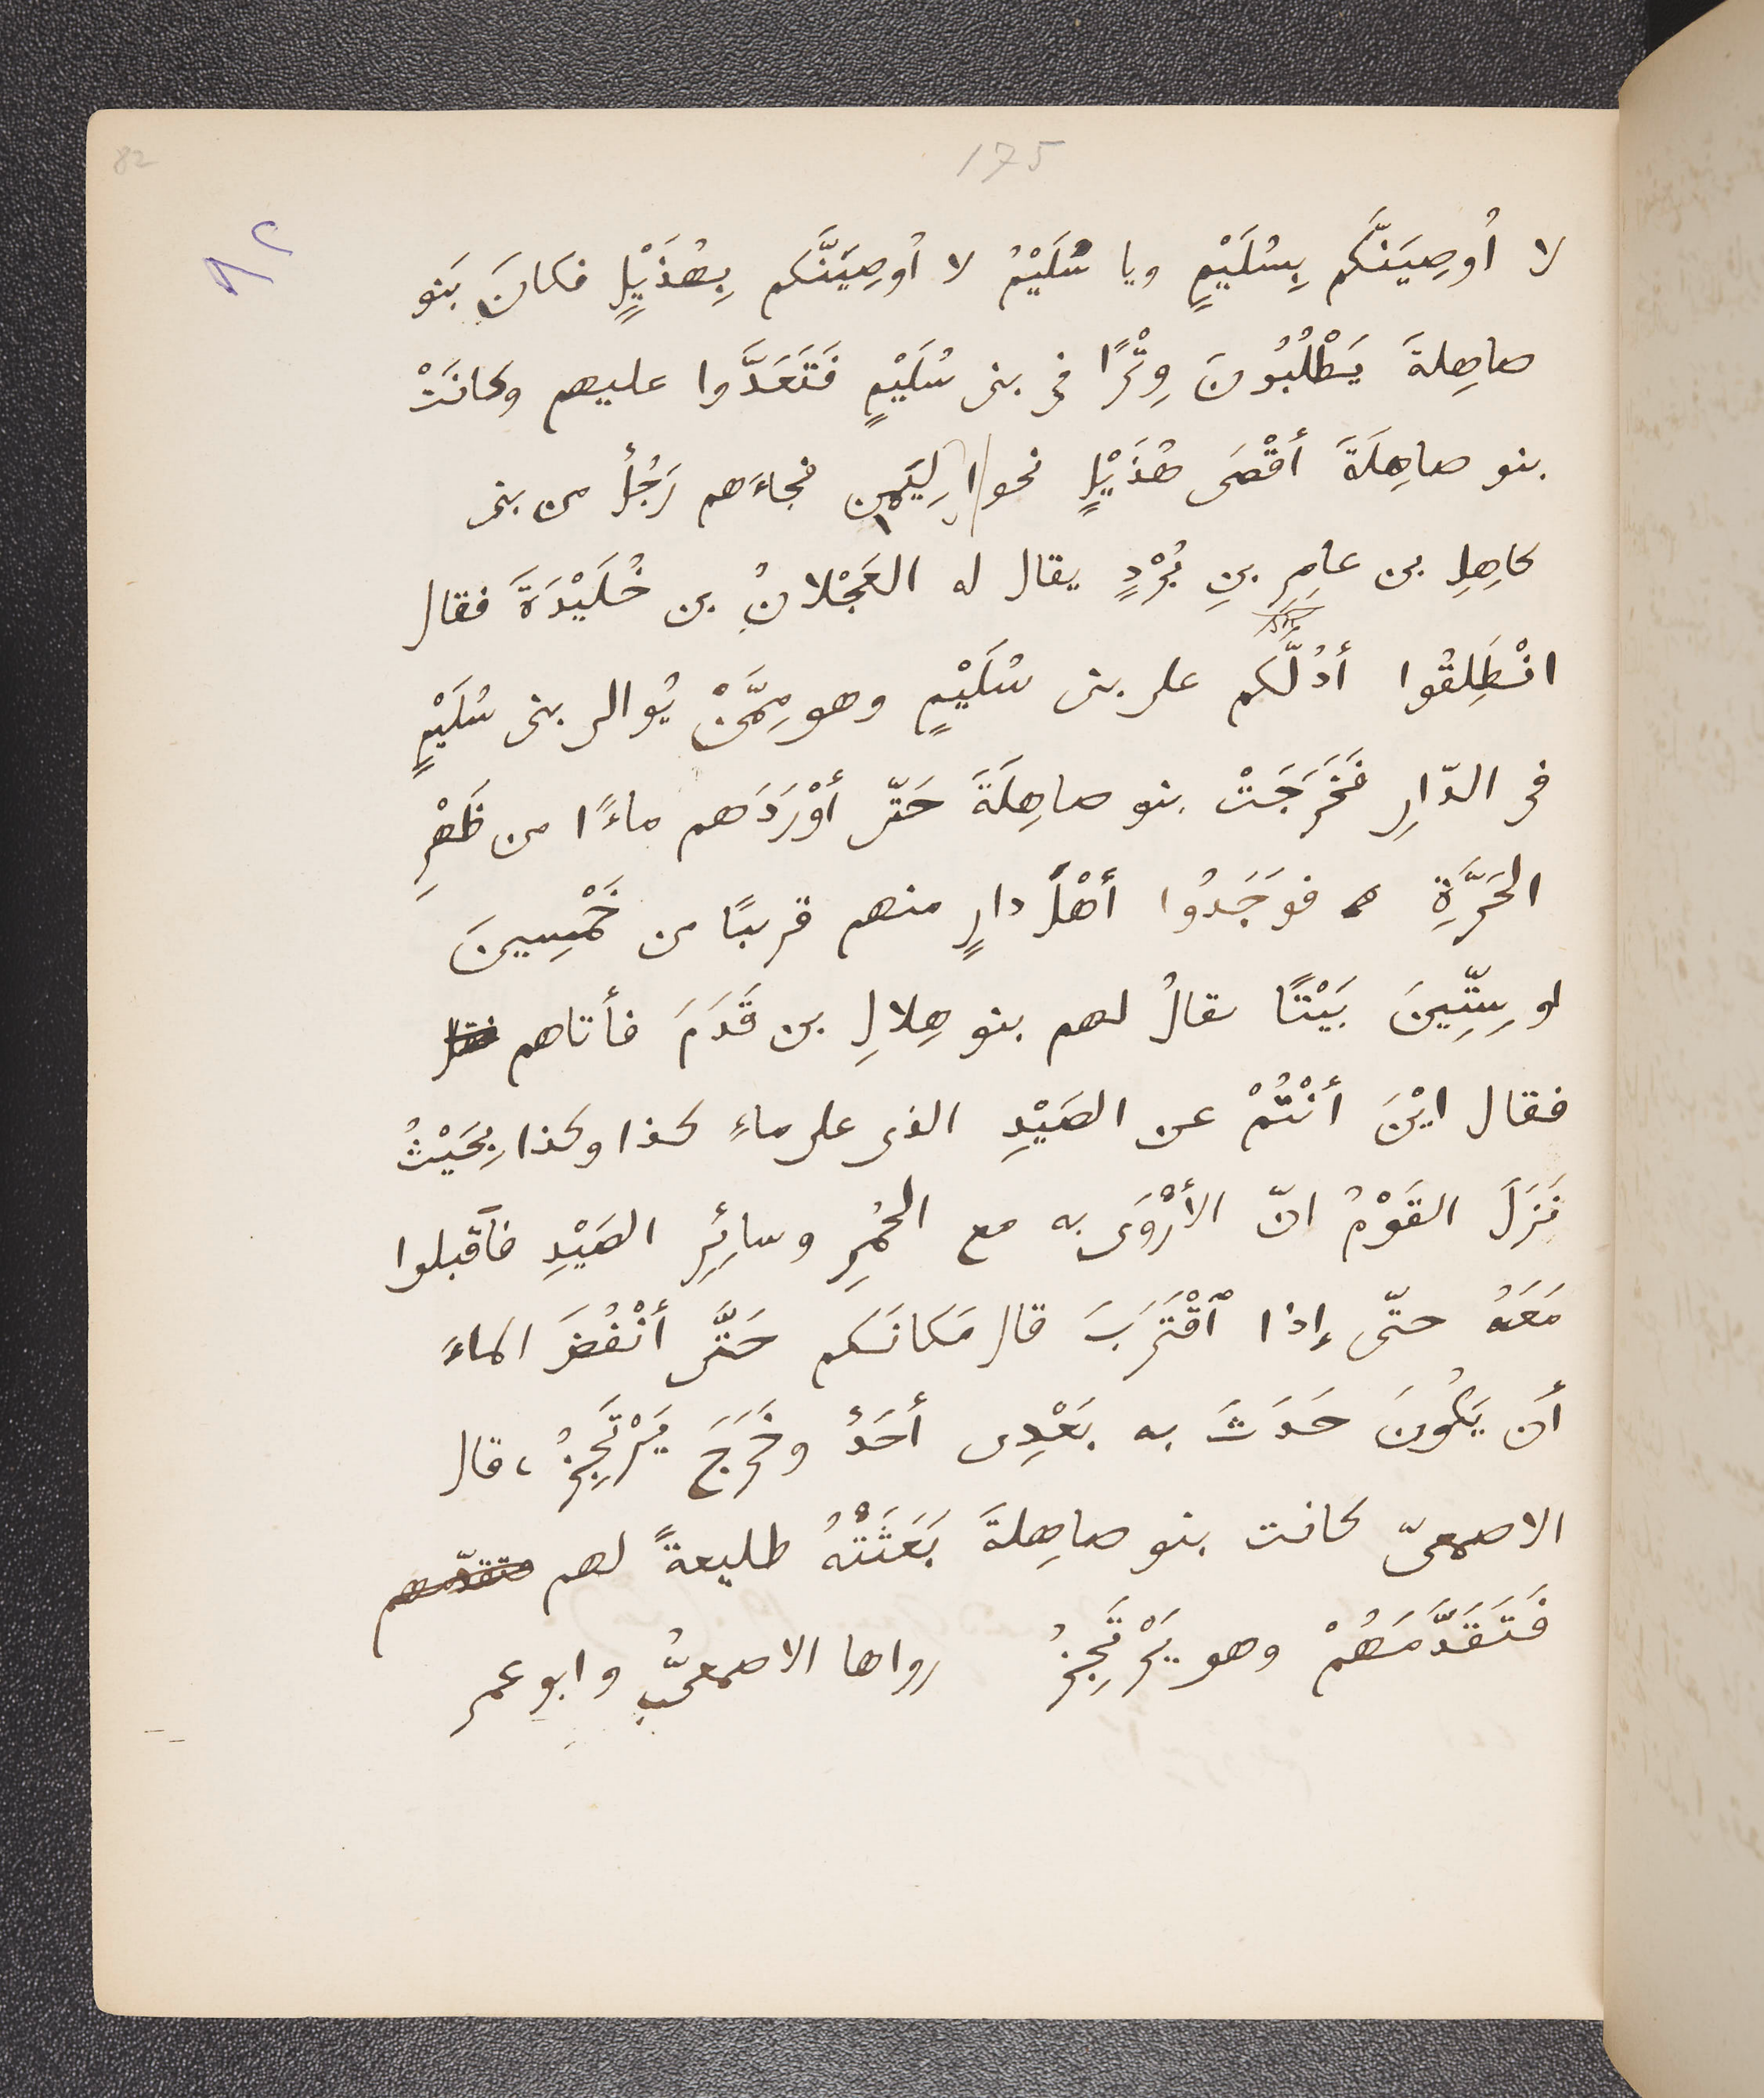 82
175
٨٢
لا أُوصِيَنَّكم بِسُلَيْمٍ ويا سُلَيْمُ لا أُوصِيَنَّكم بِهُذَيْلٍ فكانَ بَنو
صاهِلةَ يَطْلُبُونَ وِتْرًا في بنى سُلَيْمٍ فَتَعَدَّوا عليهم وكانَتْ
بنو صاهِلَةَ أقْصَى هُذَيْلٍ نحو اليَمنِ فجاءَهم رَجُلٌ من بنى
كاهِلِ بن عامِرِ بنِ بُرْدٍ يقال له العَجْلانُ بن خُلَيْدَةَ فقال
انْطَلِقُوا أدُلَّكم على بنى سُلَيْمٍ وهو مِمَّنْ يُوالى بنى سُلَيْمٍ
فى الدّارِ فَخَرَجَتْ بنو صاهِلَةَ حَتّى أوْرَدَهم ماءً ا من ظَهْرِ
الحَرَّةِ فوَجَدُوا أهْلَ دارٍ منهم قريبًا من خَمْسِينَ
او سِتِّينَ بَيْتًا يقالُ لهم بنو هِلالِ بن قَدَمَ فأتاهم
فقال ايْنَ أنْتُمْ عن الصَيْدِ الذى على ماءِ كذا وكذا بِحَيْثُ
نَزَلَ القَوْمُ انّ الأرْوَى به مع الحُمُرِ وسائِرِ الصَيْدِ فأقبلوا
مَعَهُ حتّى إذا ٱقْتَرَبَ قال مَكانَكم حَتَّى أنْفُضَ الماءَ
أن يَكُونَ حَدَثَ به بَعْدِى أحَدٌ وخَرَجَ يَرْتَجِزُ، قال
الاصمعىّ كانت بنو صاهِلةَ بَعَثَتْهُ طليعةً لهم متقدّمهم
فَتَقَدَّمَهُمْ وهو يَرْتَجِزُ رواها الاصمعىُّ وابو عمر